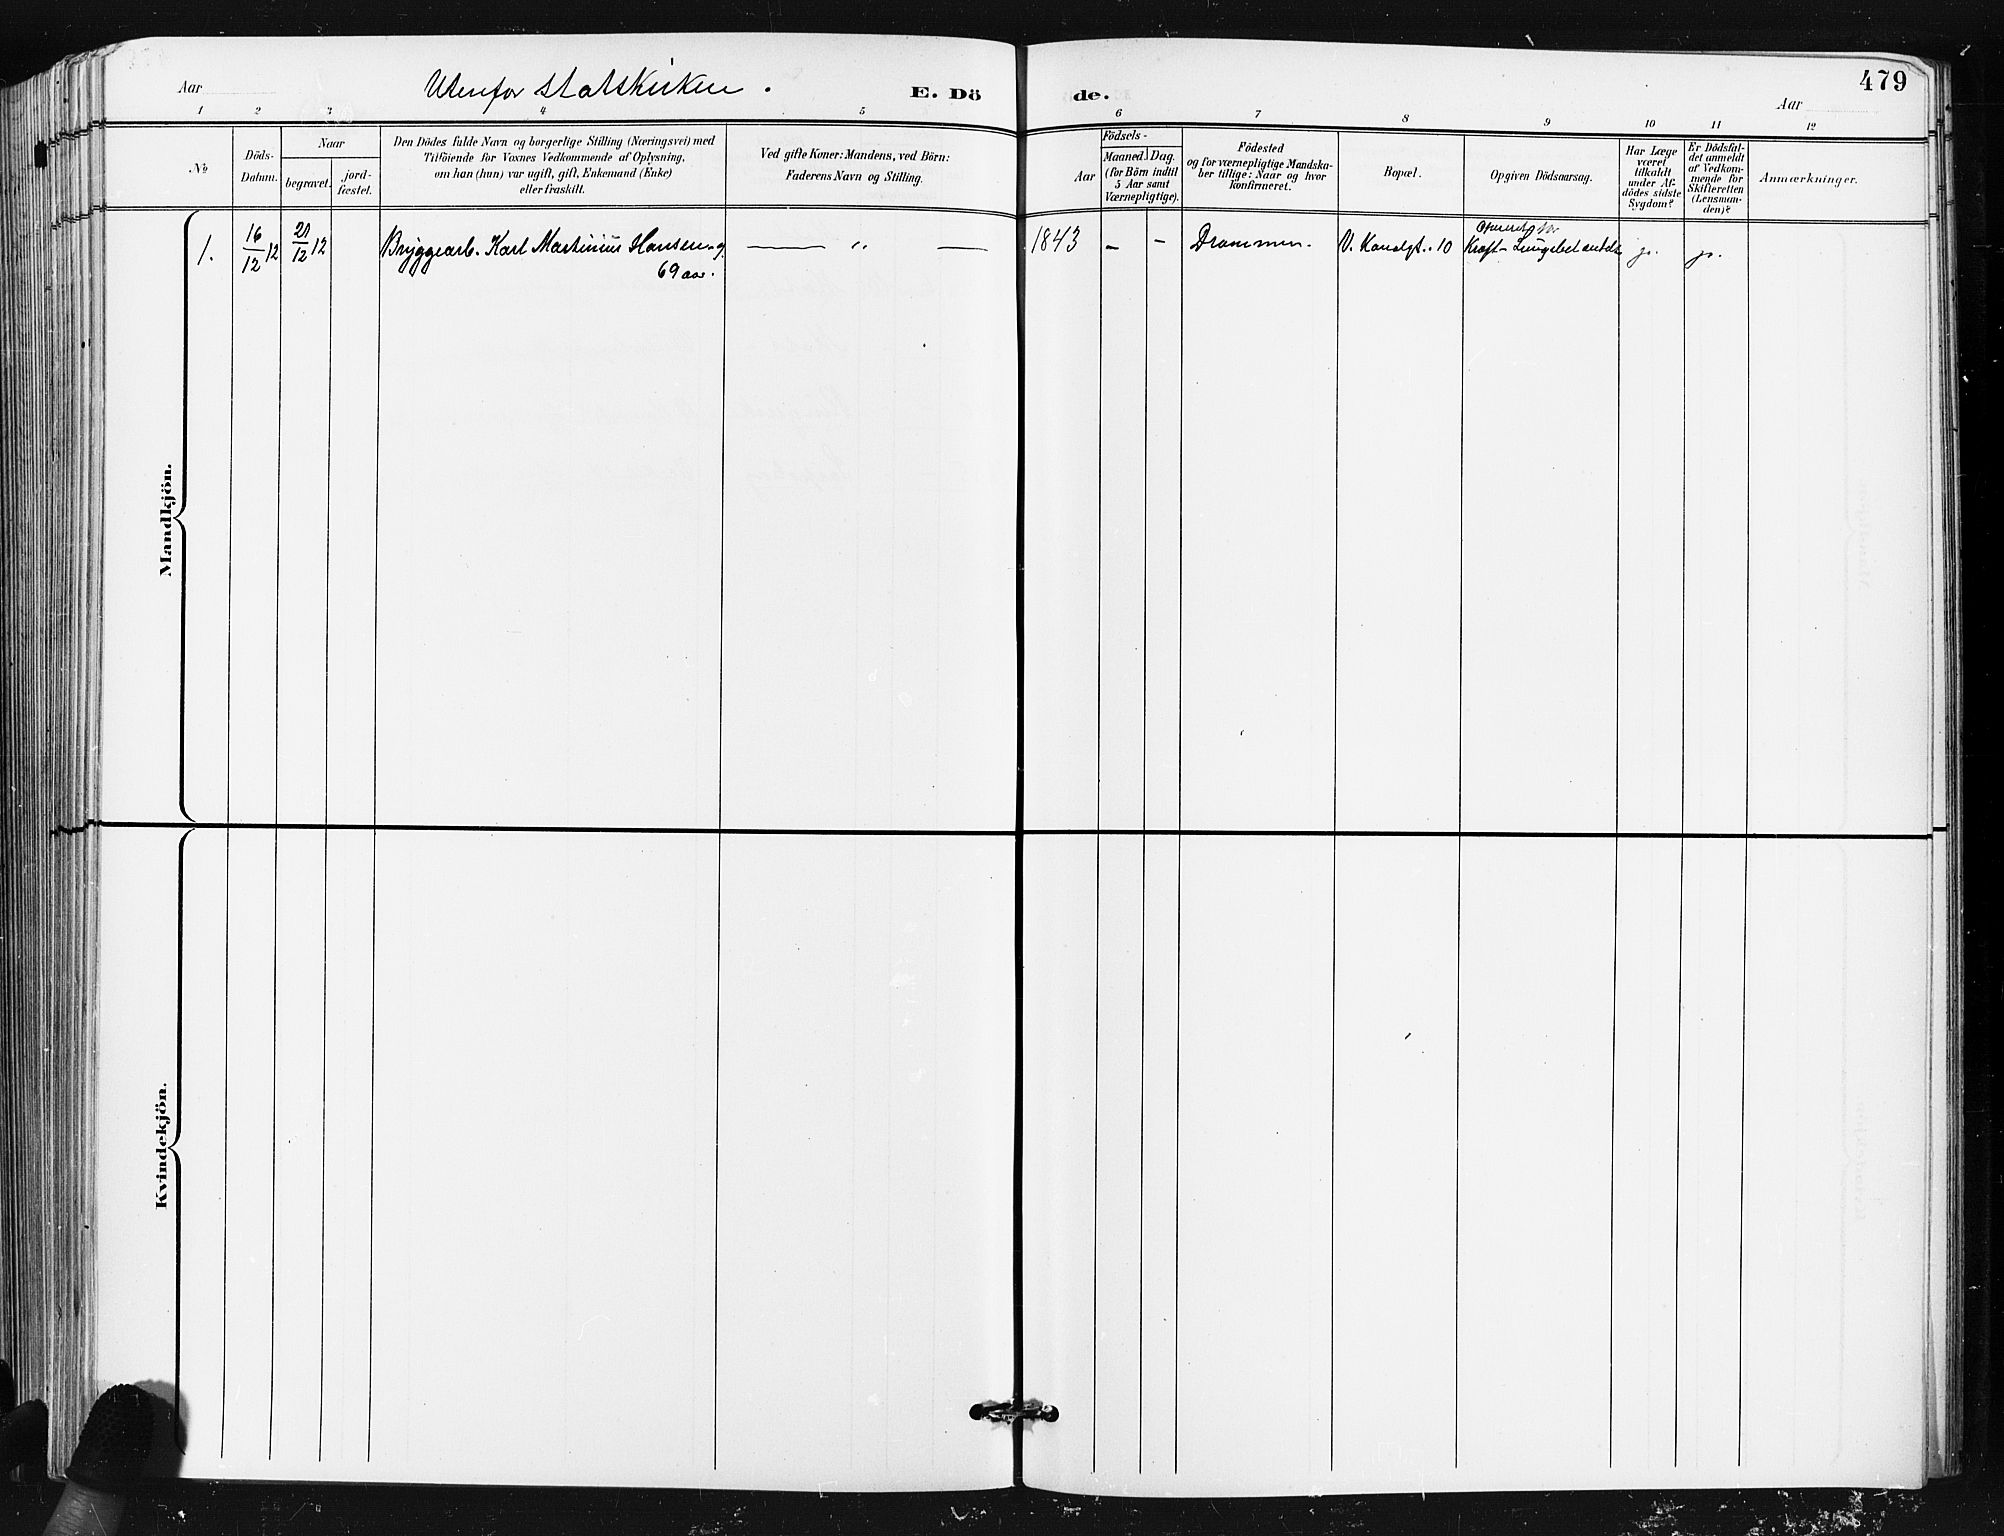 Aar
Utenfor statskirken.
E. Dö
de.
Aar
479
1 2 3 4 5 6 7 8 9 10 11 12
No
Döds-
Datum.
Naar
begravet.
jord-
fæstet.
Den Dödes fulde Navn og borgerlige Stilling (Næringsvei) med
Tilföiende for Voxnes Vedkommende af Oplysning,
om han (hun) var ugift, gift, Enkemand (Enke)
eller fraskilt.
Ved gifte Koner: Mandens, ved Börn:
Faderens Navn og Stilling.
Födsels-
Aar
Maaned. Dag.
(for Börn indtil
5 Aar samt
Værnepligtige).
Födested
og for værnepligtige Mandska-
ber tillige: Naar og hvor
konfirmeret.
Bopæl.
Opgiven Dödsaarsag.
Har Læge
været
tilkaldt
under Af-
dödes sidste
Sygdom?
Er Dödsfal-
det anmeldt
af Vedkom-
mende for
Skifteretten
(Lensman-
den)?
Anmærkninger.
1. 16/12 12 21/12 12 Bryggearb. Karl Martinius Hansen g. — " — 1843 - - Drammen. V. Kanalgt. 10 Opereret for
69 aar. Kræft - ja. ja.
Mandkjön.
Kvindekjön.